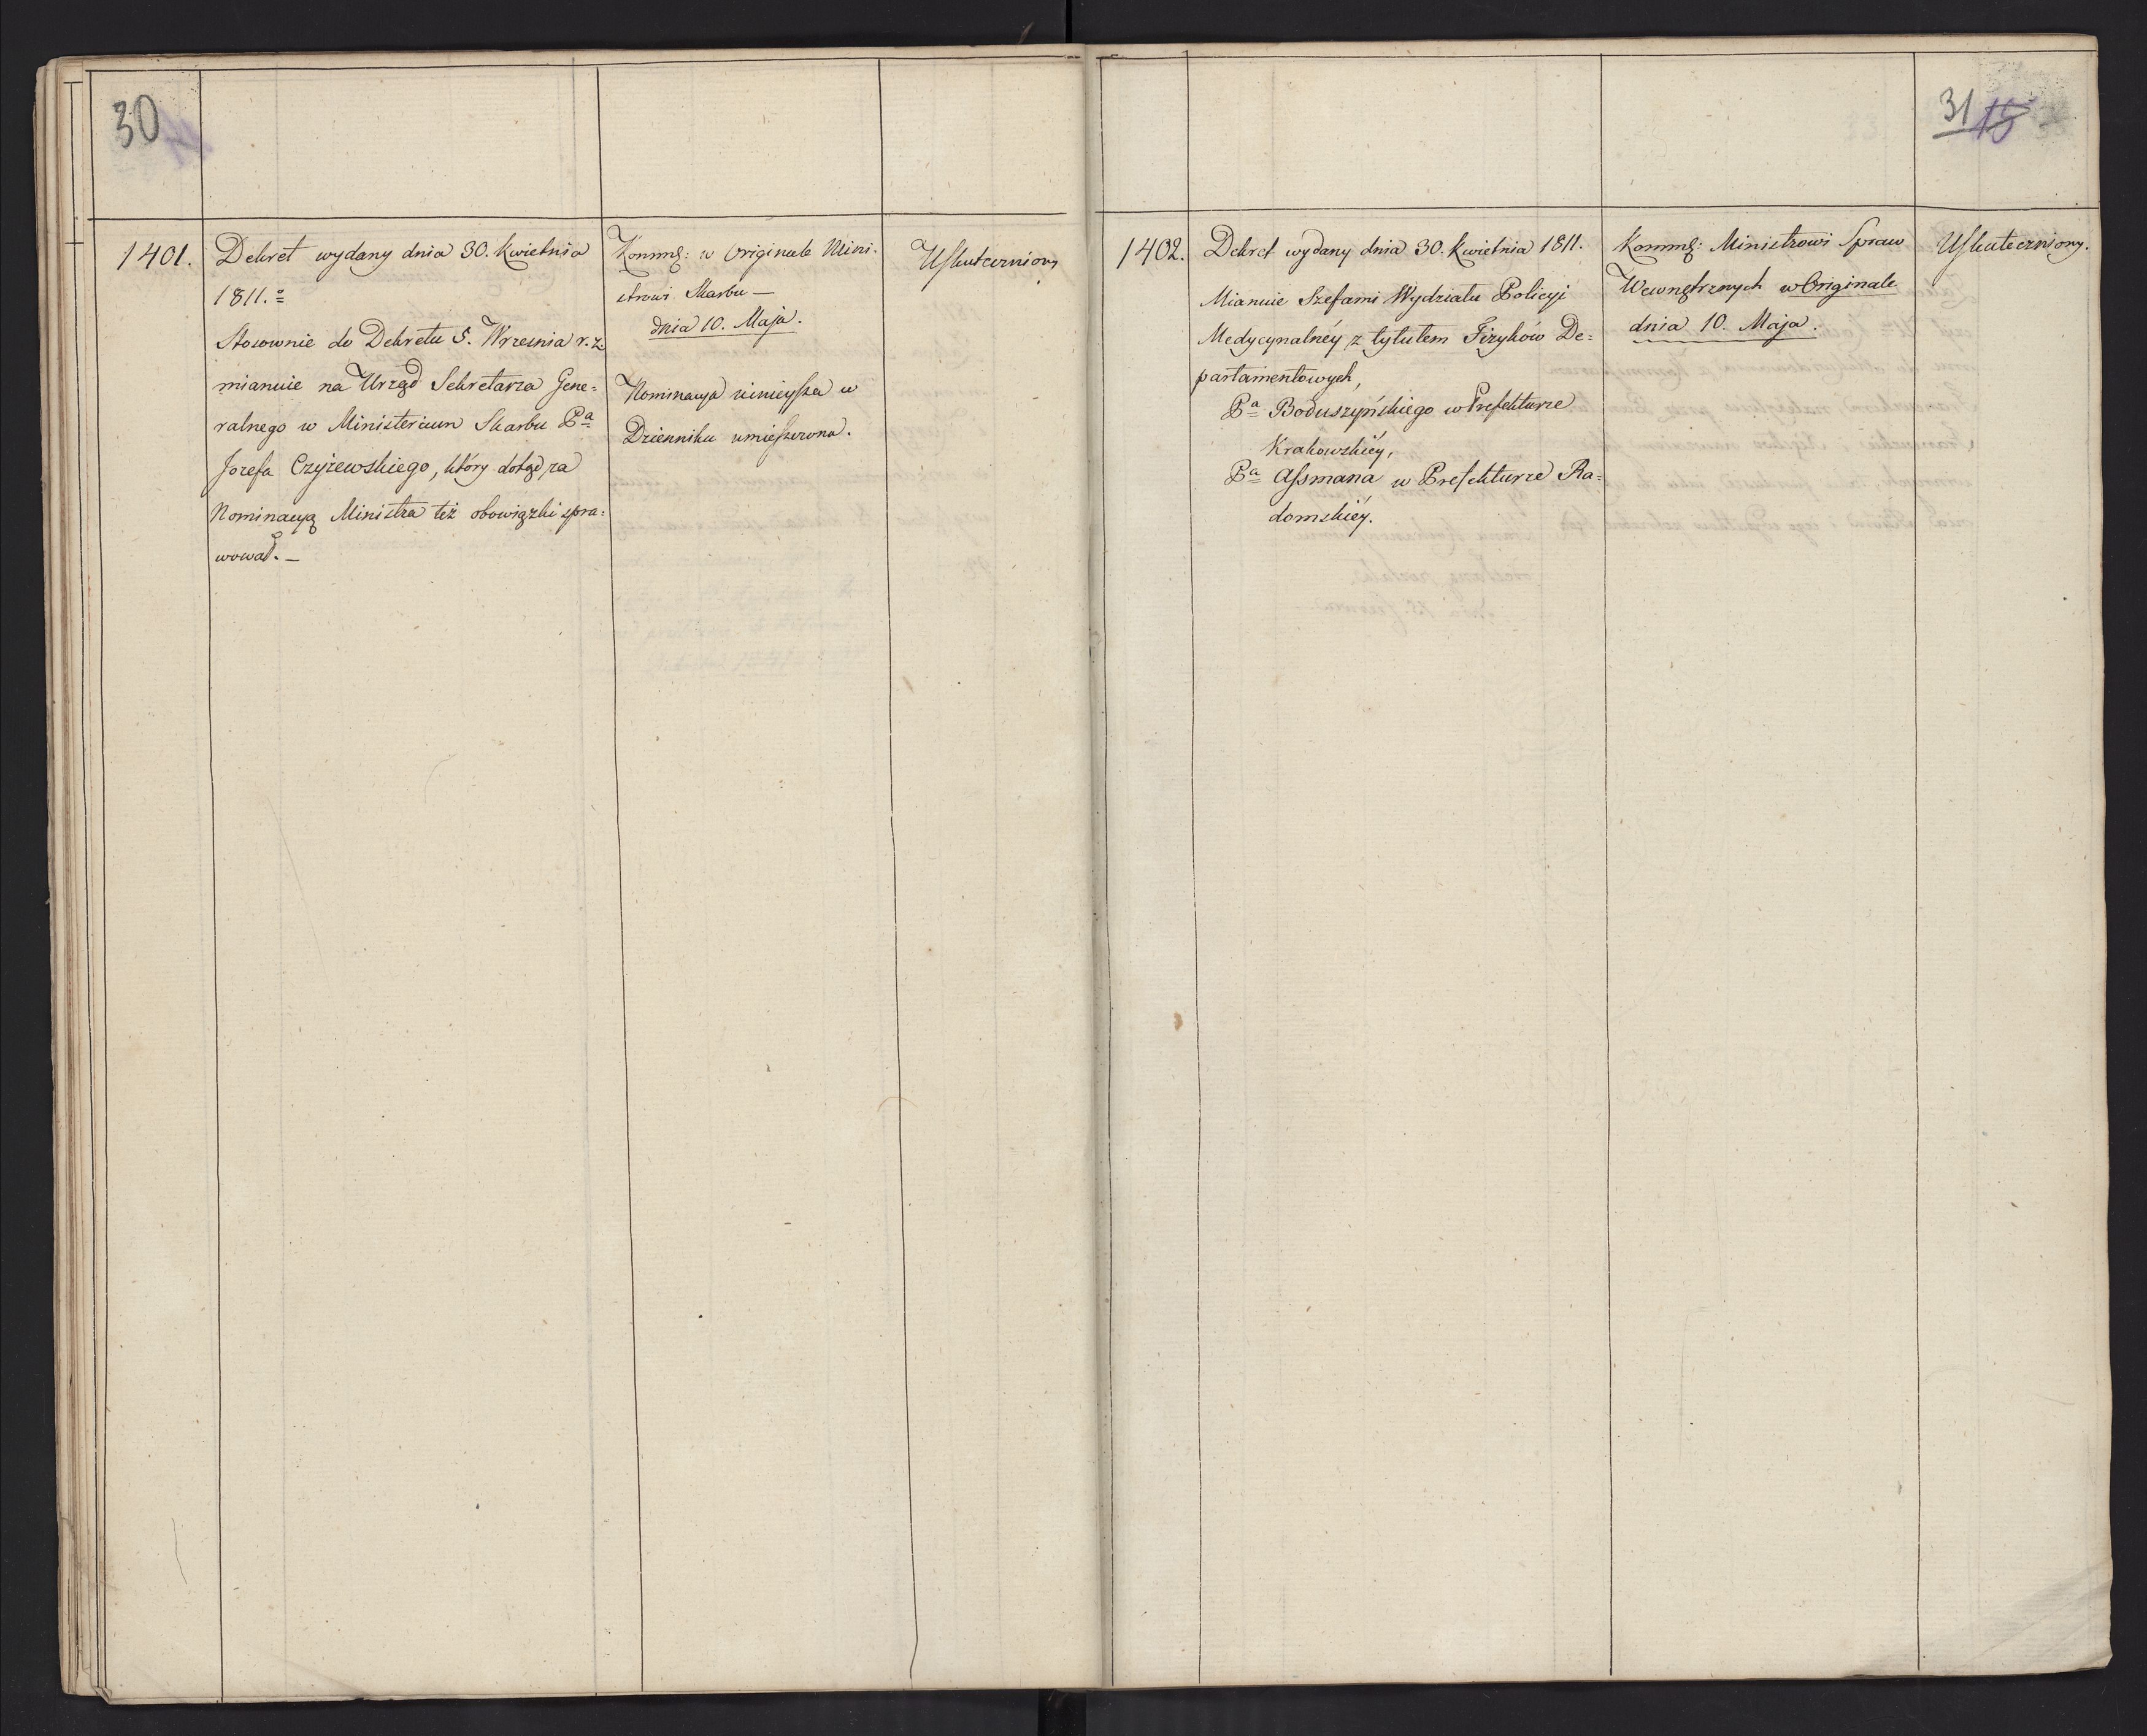 30
1401.
Dekret wydany dnia 30. Kwietnia
1811.o
Stosownie do Dekretu 5. Wrzesnia r. z.
mianuie na Urząd Sekretarza Gene=
ralnego w Ministerium Skarbu Pa
Jozefa Czyżewskiego, który dotąd za
Nominacyą Ministra też obowiązki spra=
wował. —
Kommū: w Originale Mini-
strowi Skarbu —
dnia 10. Maja.
Nominacya ninieyſza w
Dzienniku umieſzczona.
Uſkuteczniony
31 15
1402.
Dekret wydany dnia 30. Kwietnia 1811.
Mianuie Szefami Wydziału Policyi
Medycynalnéy z tytułem Fizyków De=
partamentowych,
Pa Boduszyńskiego w Prefekturze
Krakowskiéy,
Pa Aſsmana w Prefekturze Ra=
domskiéy.
Kommū: Ministrowi Spraw
Wewnętrznych w Originale
dnia 10. Maja.
Uſkuteczniony.